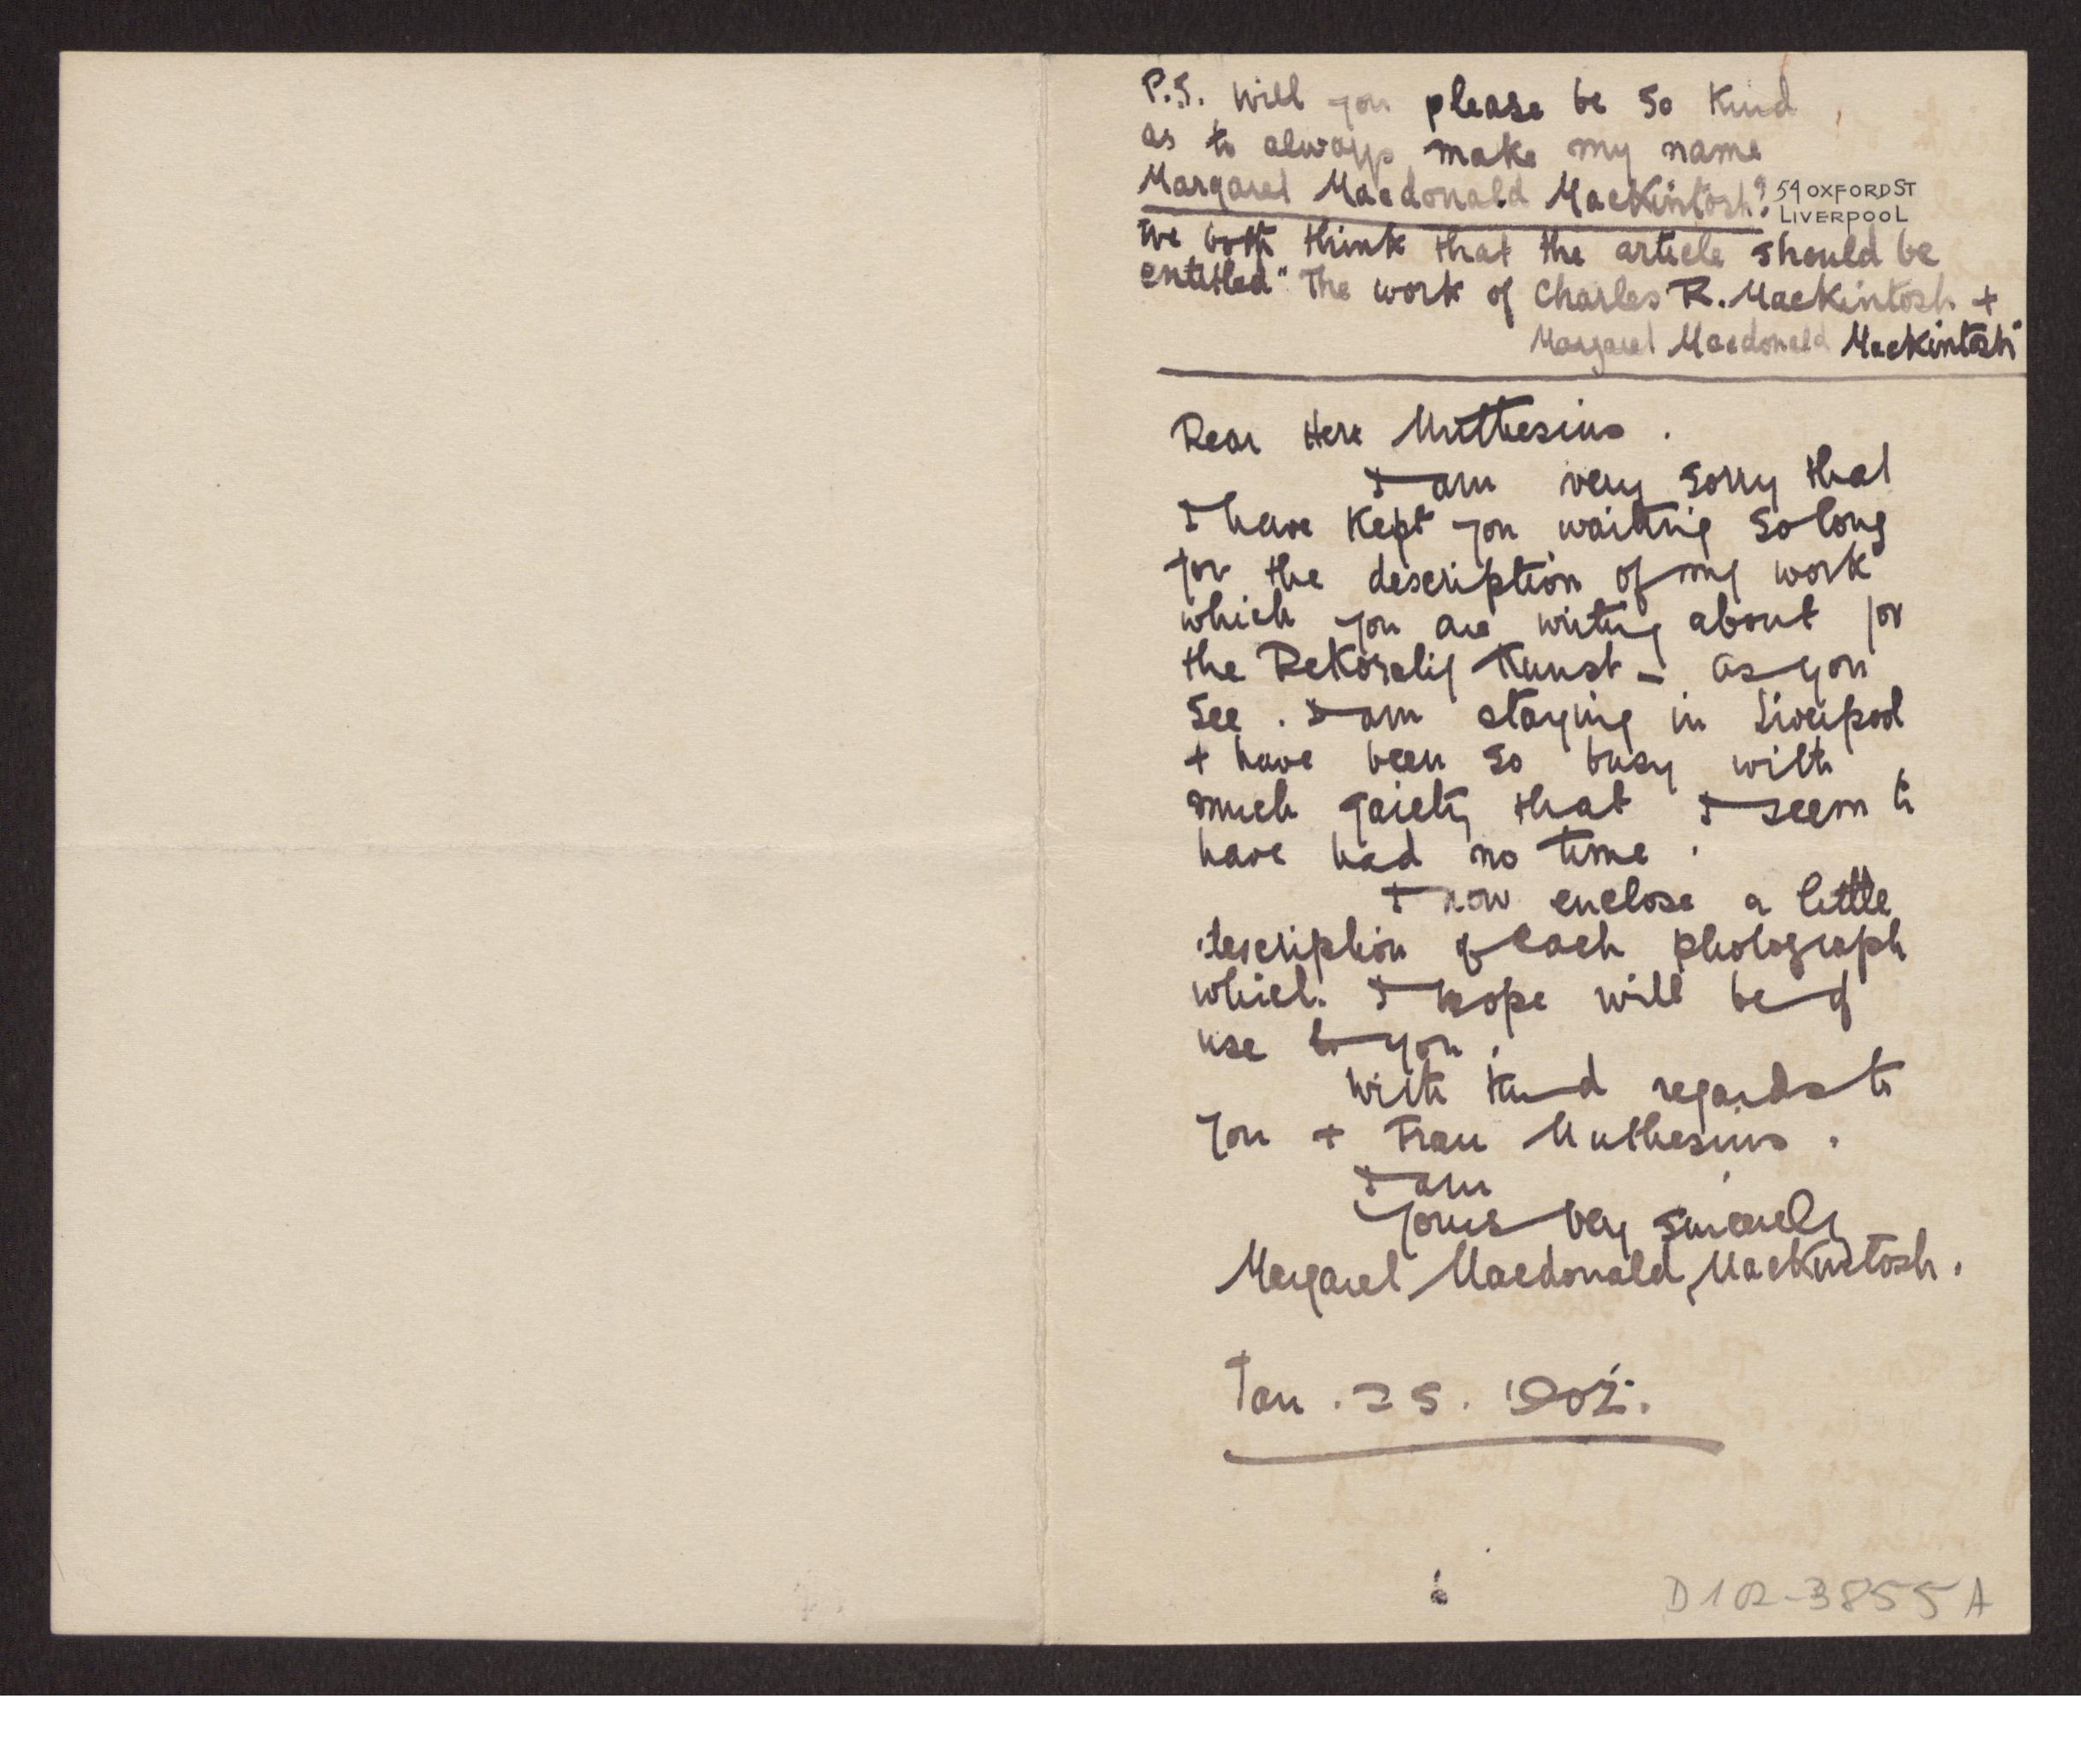 P.S. Will you please be so kind
as to always make my name
Margaret Macdonald Mackintosh?
54 OXFORD ST
LIVERPOOL
We both think that the article should be
entitled "The work of Charles R. Mackintosh +
Margaret Macdonald Mackintosh"
Dear Herr Muthesius.
I am very sorry that
I have kept you waiting so long
for the description of my work
which you are writing about for
the Dekorativ Kunst – as you
see. I am staying in Liverpool
+ have been so busy with
much gaiety that I seem to
have had no time.
I now enclose a little
description of each photograph
which I hope will be of
use to you.
With kind regards to
you + Frau Muthesius.
I am
Yours very sincerely
Margaret Macdonald Mackintosh.
Jan. 25. 1902.
D102-3855A